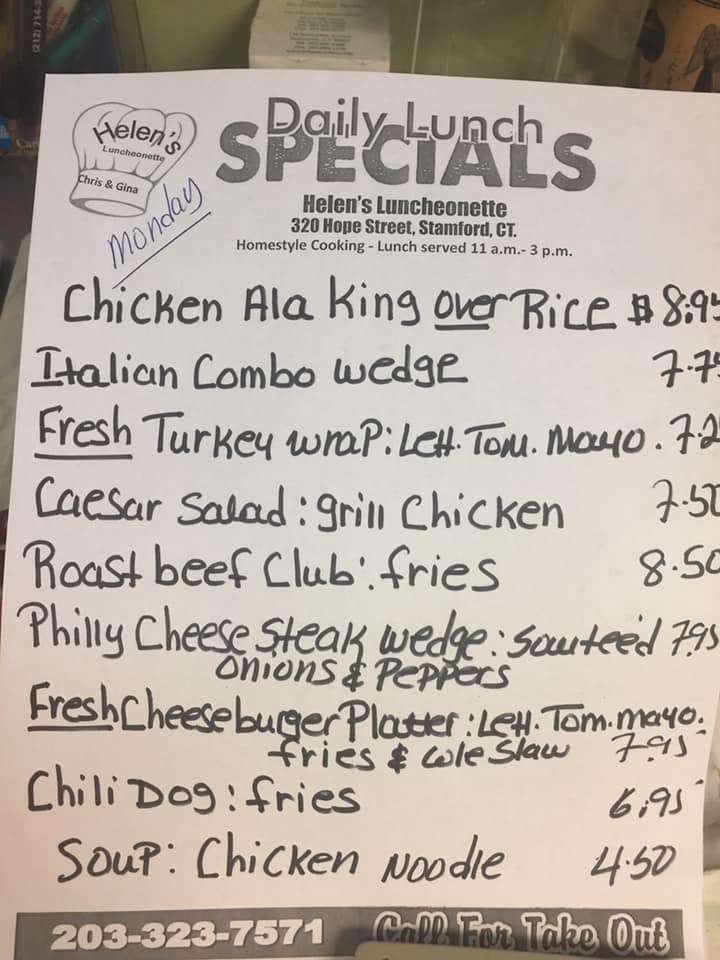 (212) 714-
Helen's
Luncheonette
Chris & Gina
Monday
Daily Lunch
SPECIALS
Helen's Luncheonette
320 Hope Street, Stamford, CT.
Homestyle Cooking - Lunch served 11 a.m.- 3 p.m.
Chicken Ala King over Rice $ 8.95
Italian Combo wedge 7.75
Fresh Turkey wrap: Lett. Tom. Mayo. 7.2
Caesar Salad: grill Chicken 7.50
Roast beef Club: fries 8.50
Philly Cheese Steak wedge: Sauteéd 7.95
onions & Peppers
Fresh Cheeseburger Platter: Lett. Tom. mayo.
fries & Cole Slaw 7.95
Chili Dog: fries 6.95
Soup: Chicken Noodle 4.50
203-323-7571 Call For Take Out